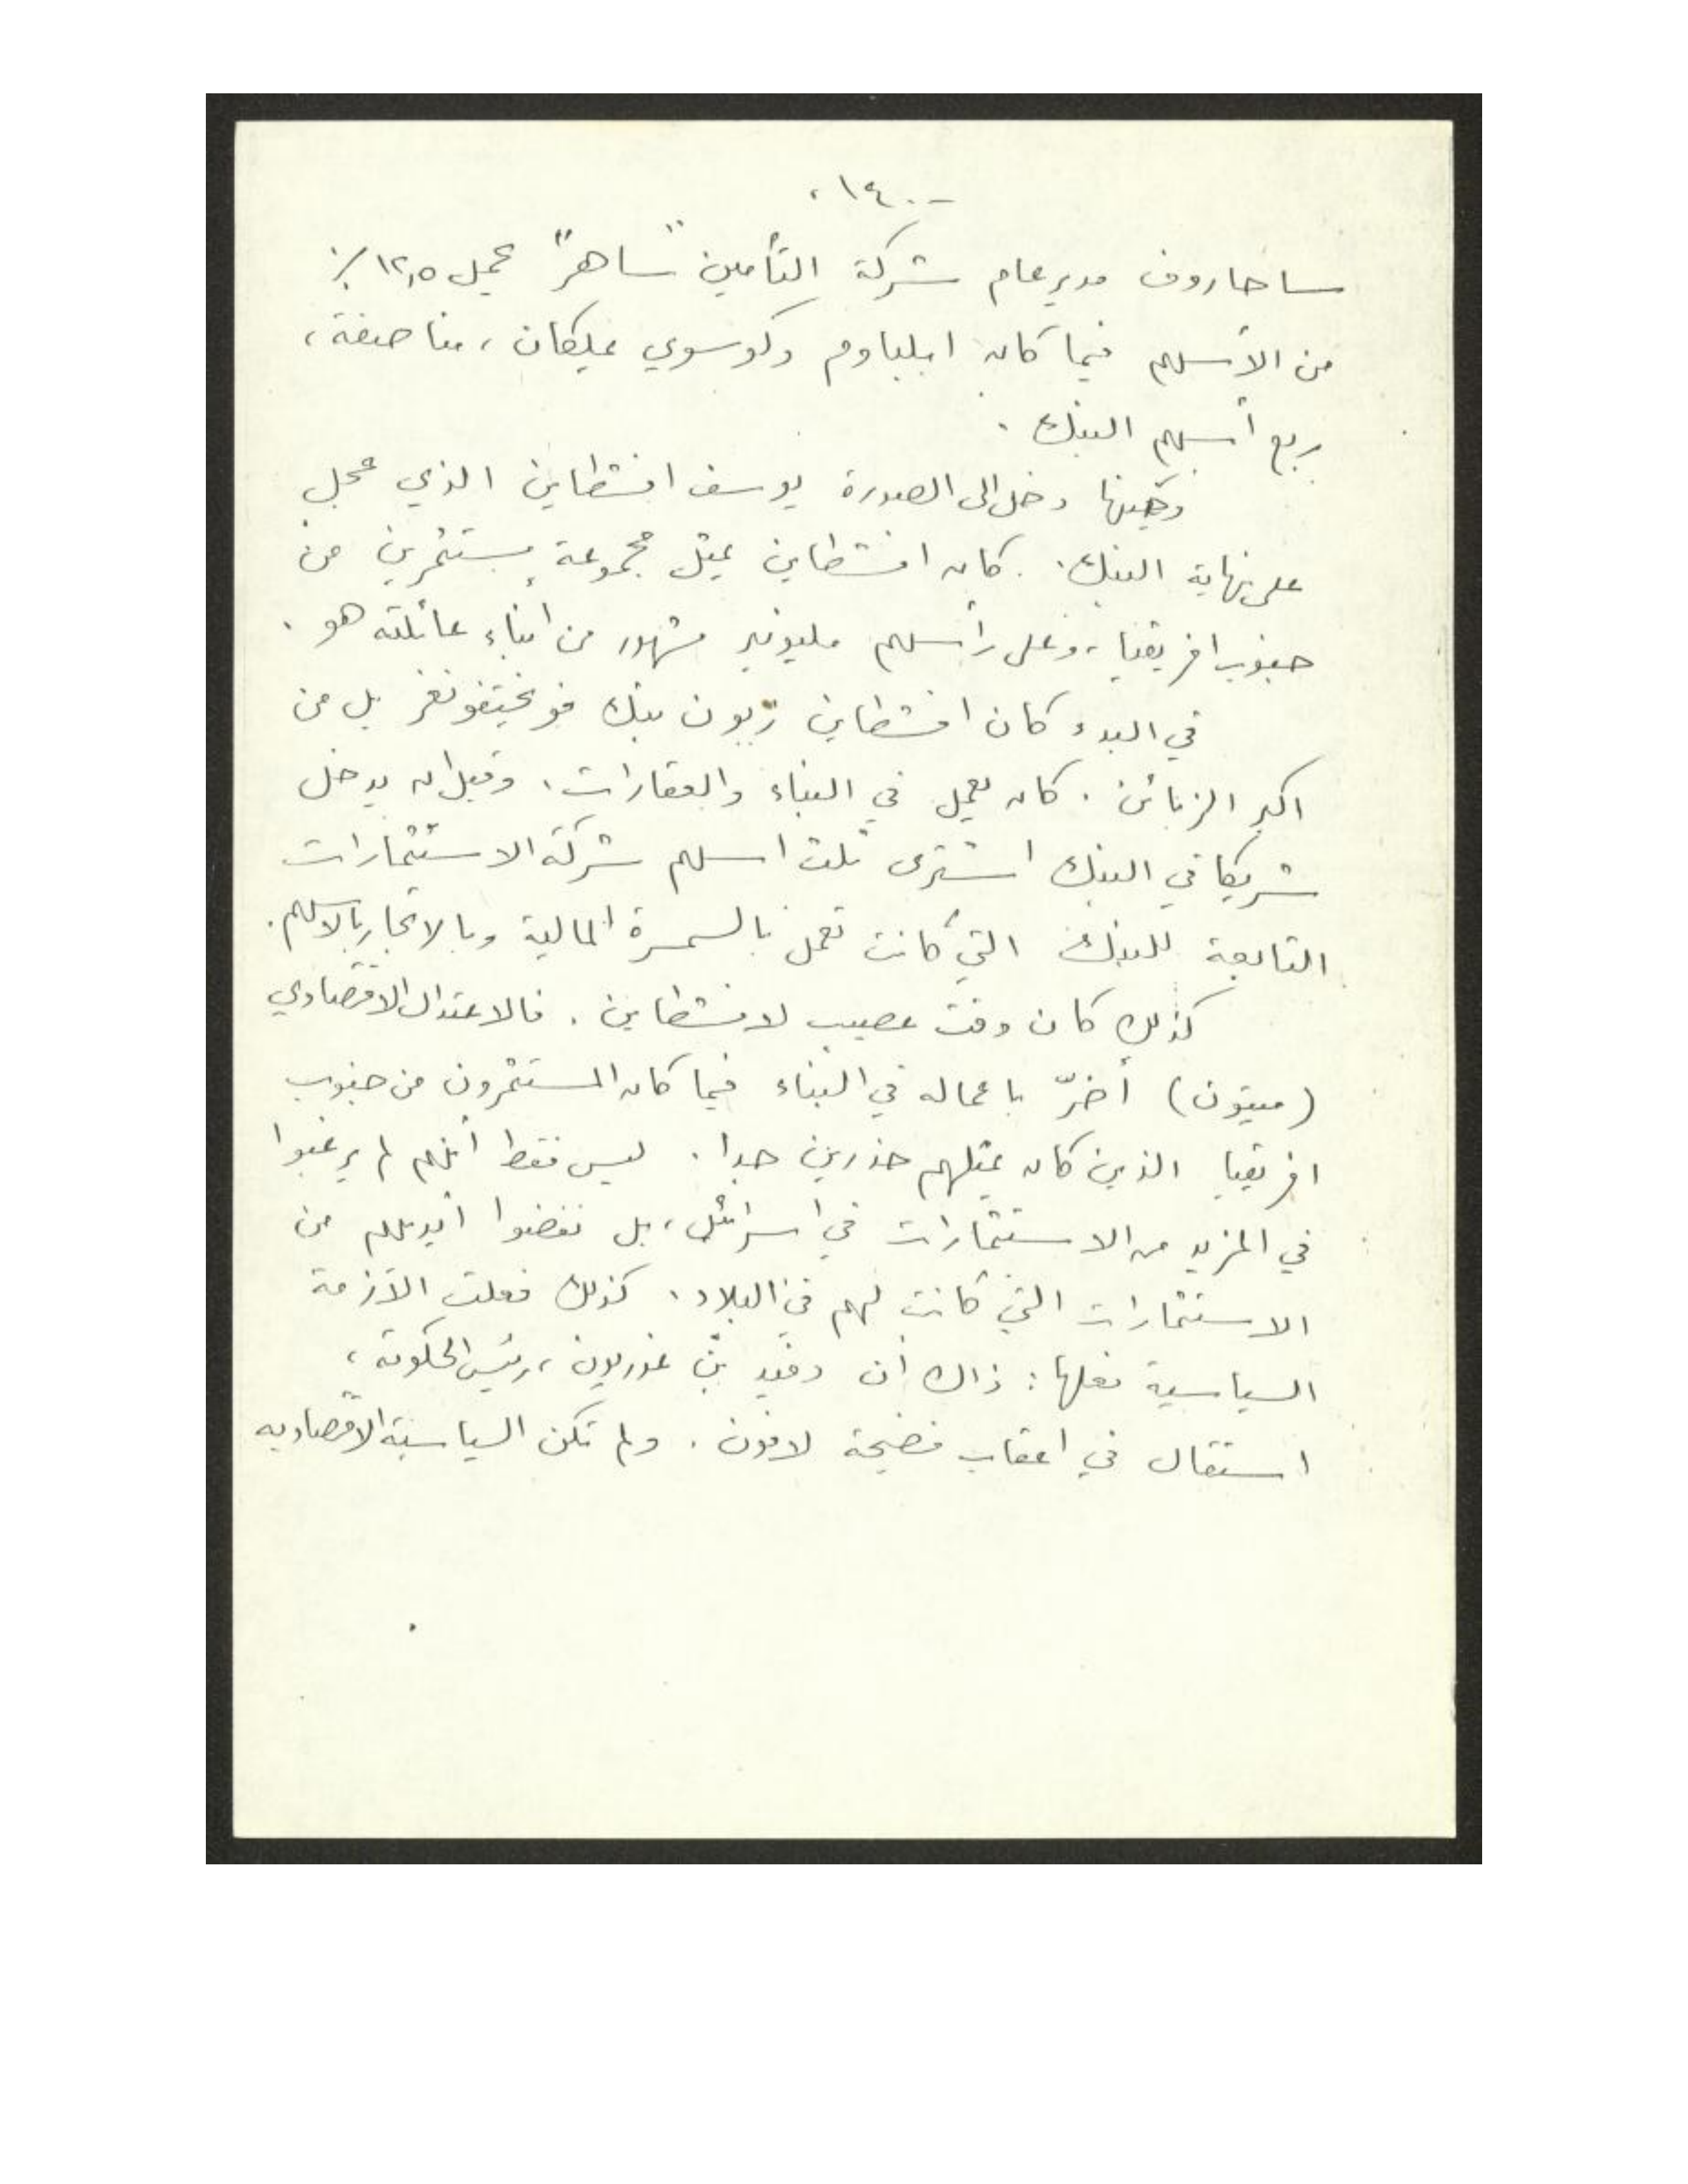 - ١٤٠ ،
ساحاروف مدير عام شركة التأمين "ساهر" يحمل ١٢,٥ ٪
من الأسهم فيما كان ابلباوم وكوسوي يملكان ، مناصفة ،
ربع أسهم البنك .
وحينها دخل الى الصورة يوسف افشطاين الذي عجل
على نهاية البنك . كان افشطاين يمثل مجموعة مستثمرين من
جنوب افريقيا ، وعلى رأسهم مليونير مشهور من أبناء عائلته هو .
في البدء كان افشطاين زبون بنك فويختفونغر بل من
اكبر الزبائن . كان يعمل في البناء والعقارات . وقبل ان يدخل
شريكا في البنك اشترى ثلث اسهم شركة الاستثمارات
التابعة للبنك التي كانت تعمل بالسمسرة المالية وبالاتجار بالاسهم .
كذلك كان وقت عصيب لافشطاين . فالاعتدال الاقتصادي
(ميتون) أضرّ باعماله في البناء فيما كان المستثمرون من جنوب
افريقيا الذين كان يمثلهم حذرين جدا . ليس فقط أنهم لم يرغبوا
في المزيد من الاستثمارات في اسرائيل ، بل نفضوا أيديهم من
الاستثمارات التي كانت لهم في البلاد . كذلك فعلت الأزمة
السياسية فعلها : ذاك أن دفيد بن غوريون ، رئيس الحكومة ،
استقال في اعقاب فضيحة لافون . ولم تكن السياسة الاقتصادية